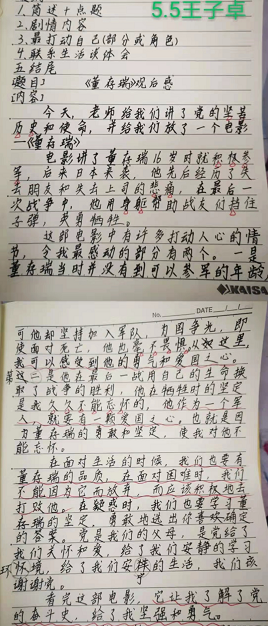 5.5王子卓
1.简述十点题
2.剧情内容
3.最打动自己(部分或角色)
4.联系生活谈体会
五结尾
题目】 《董存瑞》观后感
【内容】
今天,老师给我们讲了党的坚苦
历史和使命,并给我们放了一个电影
—《董存瑞》
电影讲了董存瑞16岁时就积极参
军,后来日本来袭,他先后经历了失
去朋友和失去上司的悲痛,在最后一
次战争中,他用身躯帮助战友们挡住
子弹,英勇牺牲。
这部电影中有许多打动人心的情
节,令我最感动的部分有两个。一是
董存瑞当时并没有到可以参军的年龄
KAISA
No. DATE / /
可他却坚持加入军队,为国争光,即
使面对死亡,他也毫不畏惧从这里,
我可以感受到他的勇气和爱国之心。
第二是他在最后一战用自己的生命换
取了战争的胜利,他在牺牲时的坚定
是我久久不能忘怀的,他作为一个军
人,就要有一颗爱国之心,也就是因
为董存瑞的勇敢和坚定,使我对他不
能忘怀。
在面对生活的时候,我们也要有
董存瑞的品质,在面对困难时,我们
不能因为它而放弃,而应该积极地去
打败他。在疑惑时,我们也要学习董
存瑞的坚定,勇敢地选出你喜欢确定
的答案。党是我们的父母,是党给了
我们关怀和爱,给了我们安静的学习
环境,给了我们安康的生活,我们该
谢谢党。
看完这部电影,它让我了解了党
的奋斗史,给了我坚强和勇气。